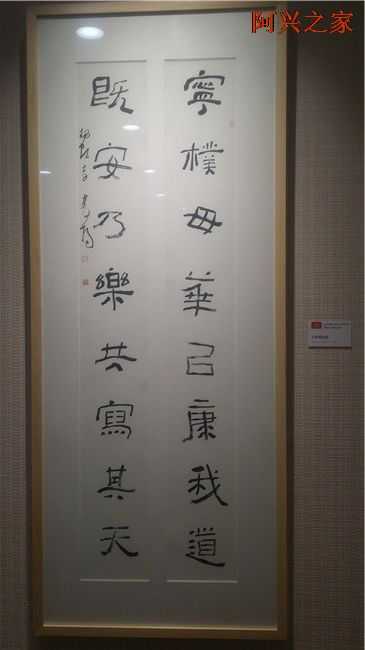 阿兴之家
寧樸毋華己康我道
既安乃樂共寫其天